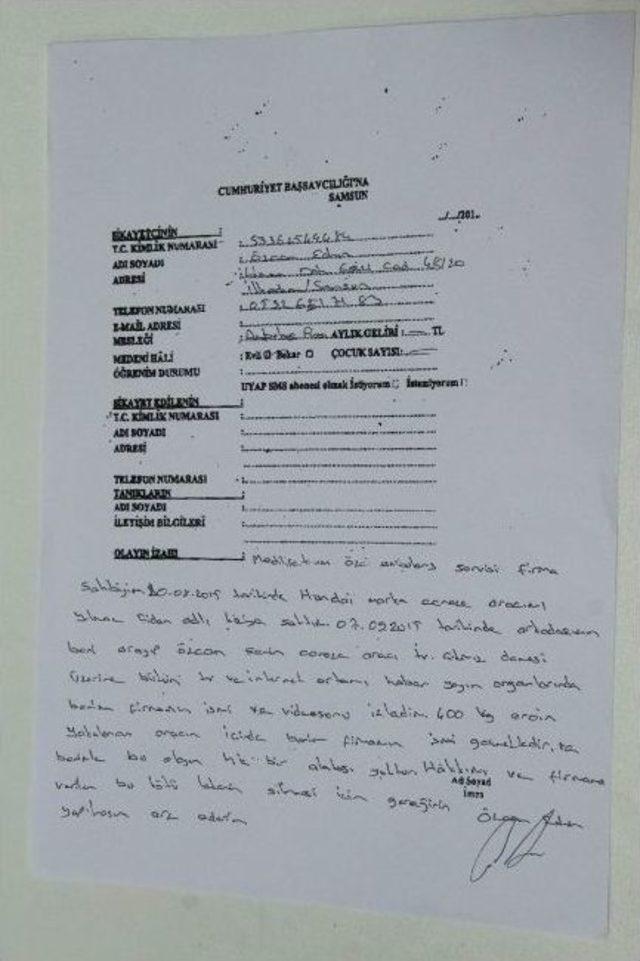 CUMHURİYET BAŞSAVCILIĞI'NA
SAMSUN
../.../201..
ŞİKAYETÇİNİN :
T.C. KİMLİK NUMARASI :
ADI SOYADI : Özcan
ADRESİ : Cad 48/20
İlkadım/Samsun
TELEFON NUMARASI : 0532 651 71 83
E-MAİL ADRESİ :
MESLEĞİ : AYLIK GELİRİ : TL
MEDENİ HÂLİ : Evli O Bekar O ÇOCUK SAYISI:
ÖĞRENİM DURUMU :
UYAP SMS abonesi olmak İstiyorum İstemiyorum
ŞİKAYET EDİLENİN :
T.C. KİMLİK NUMARASI :
ADI SOYADI :
ADRESİ :
TELEFON NUMARASI :
TANIKLARIN :
ADI SOYADI :
İLETİŞİM BİLGİLERİ :
OLAYIN İZAHI : özel ambulans servisi firma
sahibiyim 20.08.2015 tarihinde Hundai marka aracımı
adlı kişiye sattım. 07.09.2015 tarihinde arkadaşım
beni arayıp özcan senin aracı
üzerine bütün tv ve internet ortamı haber yayın organlarında
benim firmamın ismi ve videosunu izledim. 400 kg eroin
yakalanan aracın içinde benim firmamın ismi
benim bu olayla hiç bir alakası yoktur. Hakkımı ve firmama
verilen bu kötü lekenin silinmesi için gereğinin
yapılmasını arz ederim
Ad Soyad
İmza
Özcan